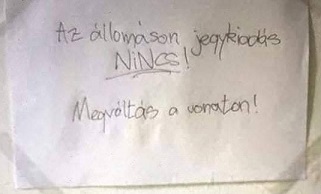 Az állomáson jegykiadás
NiNCS!
Megváltás a vonaton!